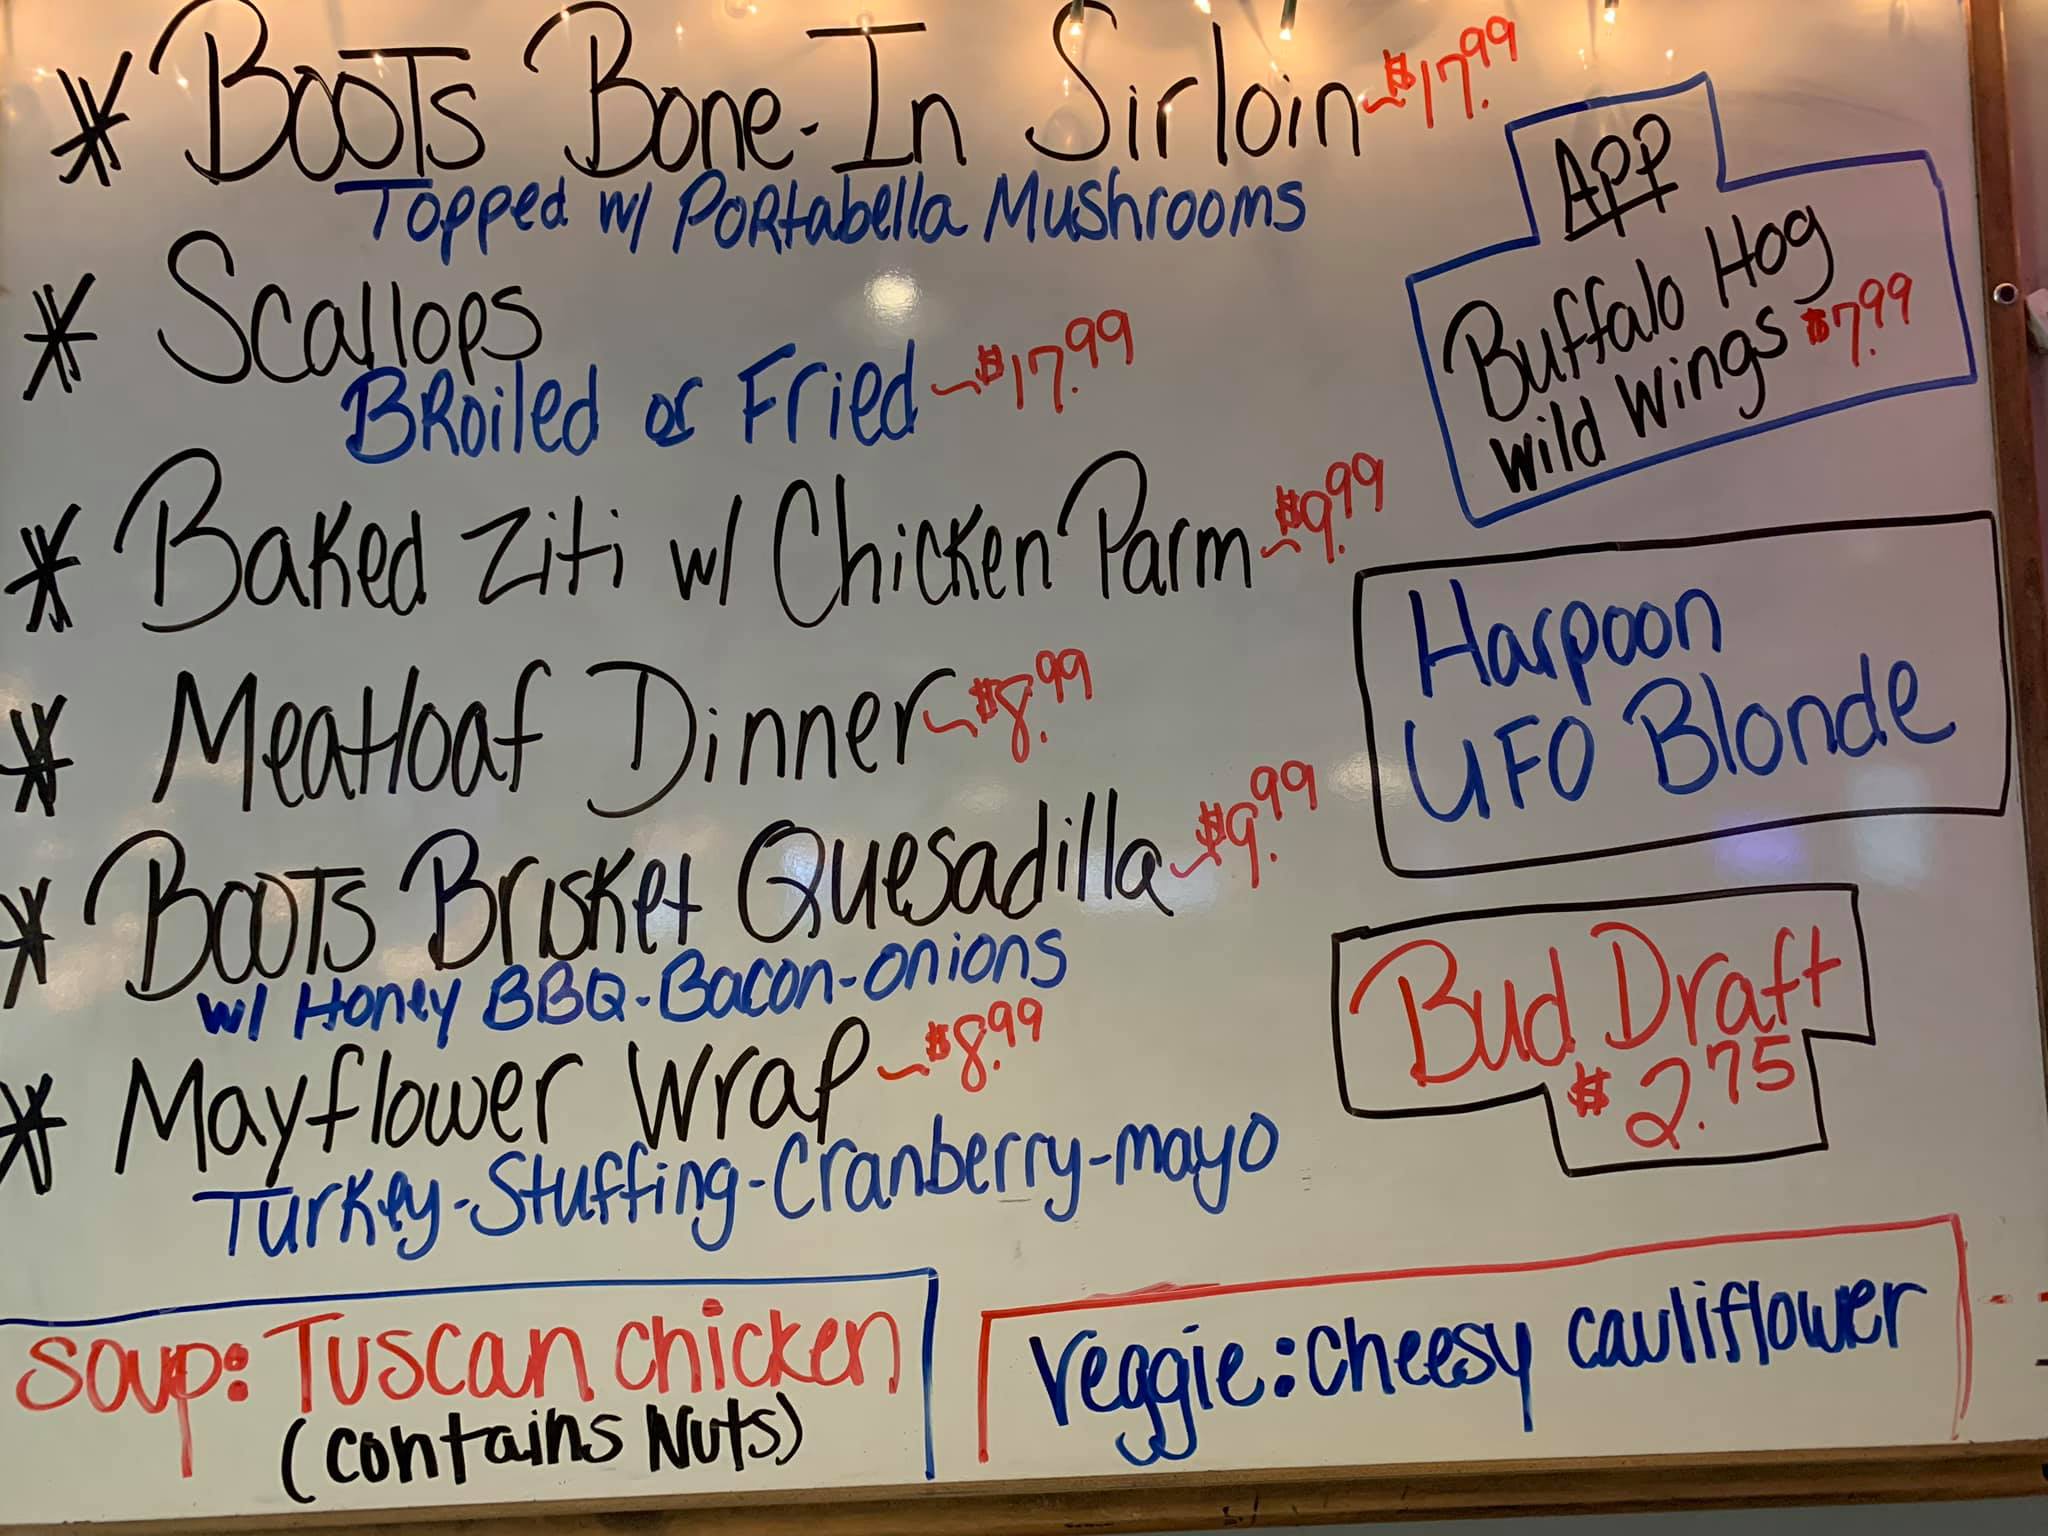 * Boots Bone-In Sirloin ~$17.99
Topped w/ Portabella Mushrooms
* Scallops
Broiled or Fried ~$17.99
* Baked Ziti w/ Chicken Parm ~$9.99
* Meatloaf Dinner ~$8.99
* Boots Brisket Quesadilla ~$9.99
w/ Honey BBQ-Bacon-onions
* Mayflower Wrap ~$8.99
Turkey-Stuffing-Cranberry-mayo
App
Buffalo Hog
Wild Wings $7.99
Harpoon
UFO Blonde
Bud Draft
$2.75
Soup: Tuscan chicken
(contains Nuts)
Veggie: cheesy cauliflower